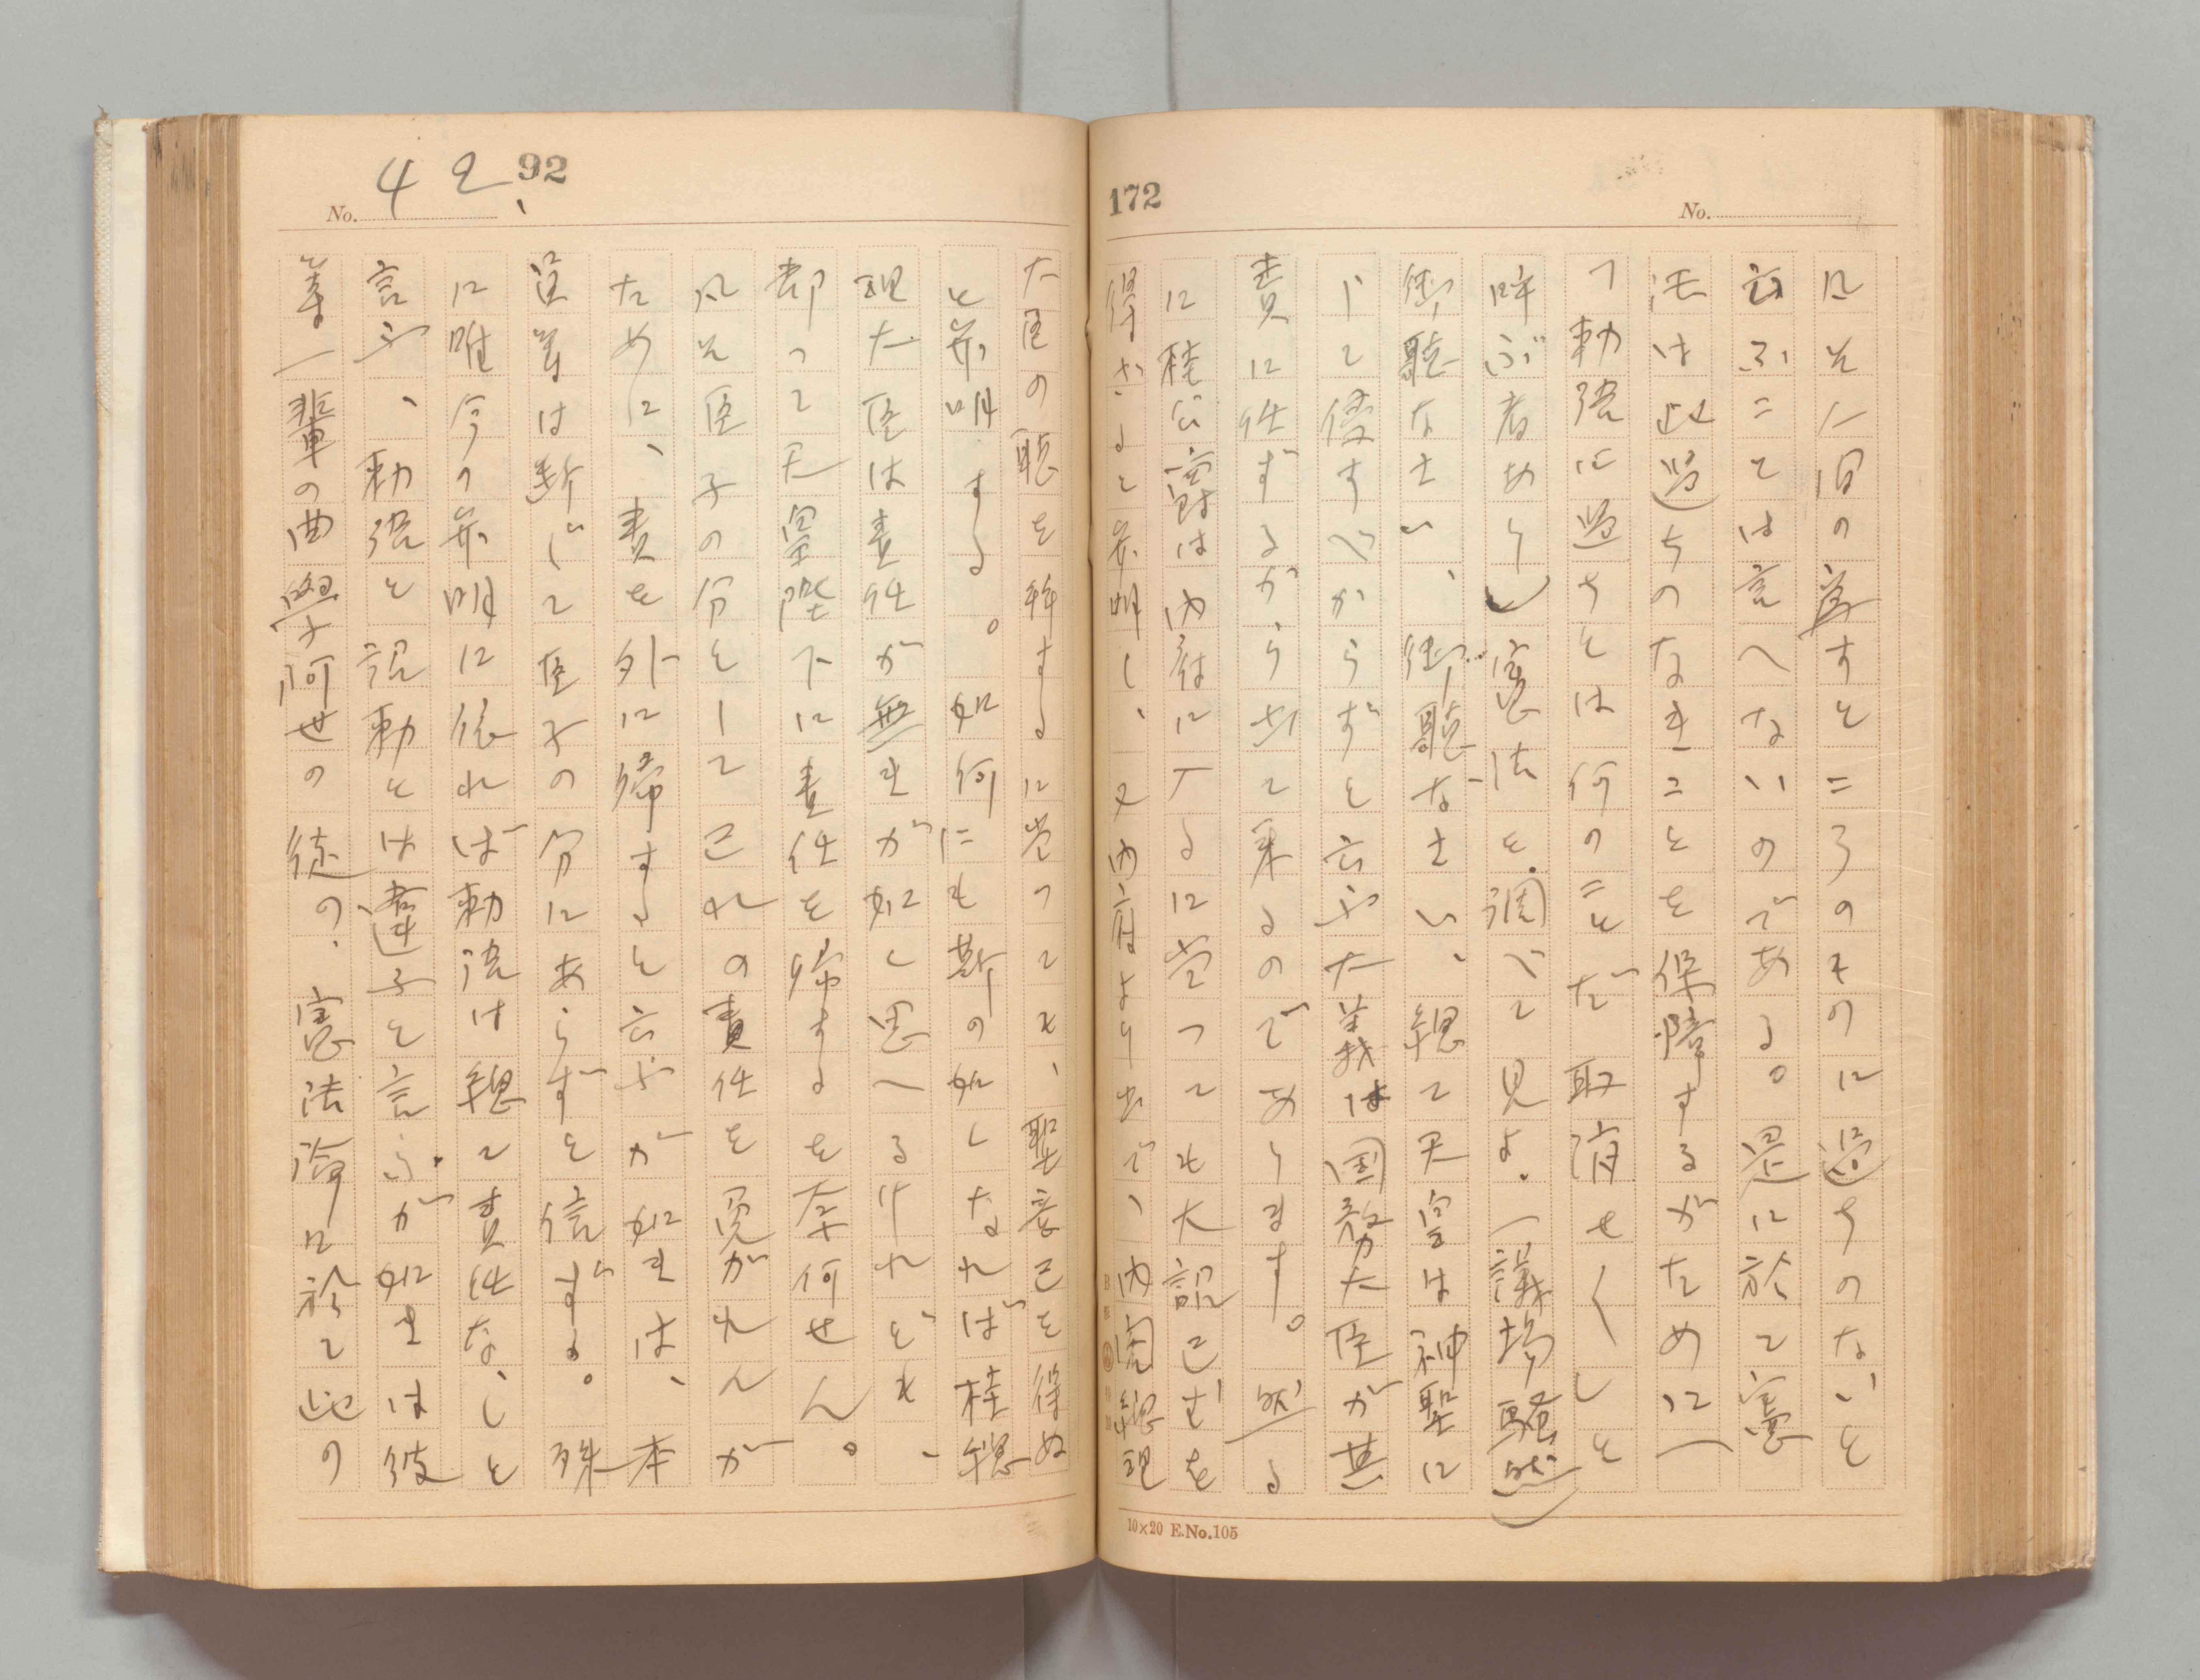 172
No.
凡そ人間の為すところのものに過ちのないと
云ふことは言へないのである。是に於て憲
法は此過ちのなきことを保障するがために(
「勅語に過ちとは何のことだ取消せ〱」と
呼ぶ者あり)憲法を調べて見よ。(議場騒然)
御聴なさい、御聴なさい、総て天皇は神聖に
して侵すべからずと云ふ大義は国務大臣が其
責に任ずるから出て来るのであります。然る
に桂公爵は内府に入るに当っても大詔已むを
得ざると弁明し、又内府より出で、内閣総理
10×20 E.No.105
92
No. 42、
大臣の職を拝するに当つても、聖意已を得ぬ
と弁明する。如何にも斯の如くなれば桂総
理大臣は責任が無きが如く思へるけれども、
却って天皇陛下に責任を帰するを奈何せん。
凡そ臣子の分として己れの責任を免がれんが
ために、責を外に帰すると云ふが如きは、本
員等は断じて臣子の分にあらずを信ずる。殊
に唯今の弁明に依れば勅語は総て責任なしと
言ふ、勅語と詔勅とは違ふと言ふが如きは彼
等一輩の曲学阿世の徒の、憲法論に於て此の